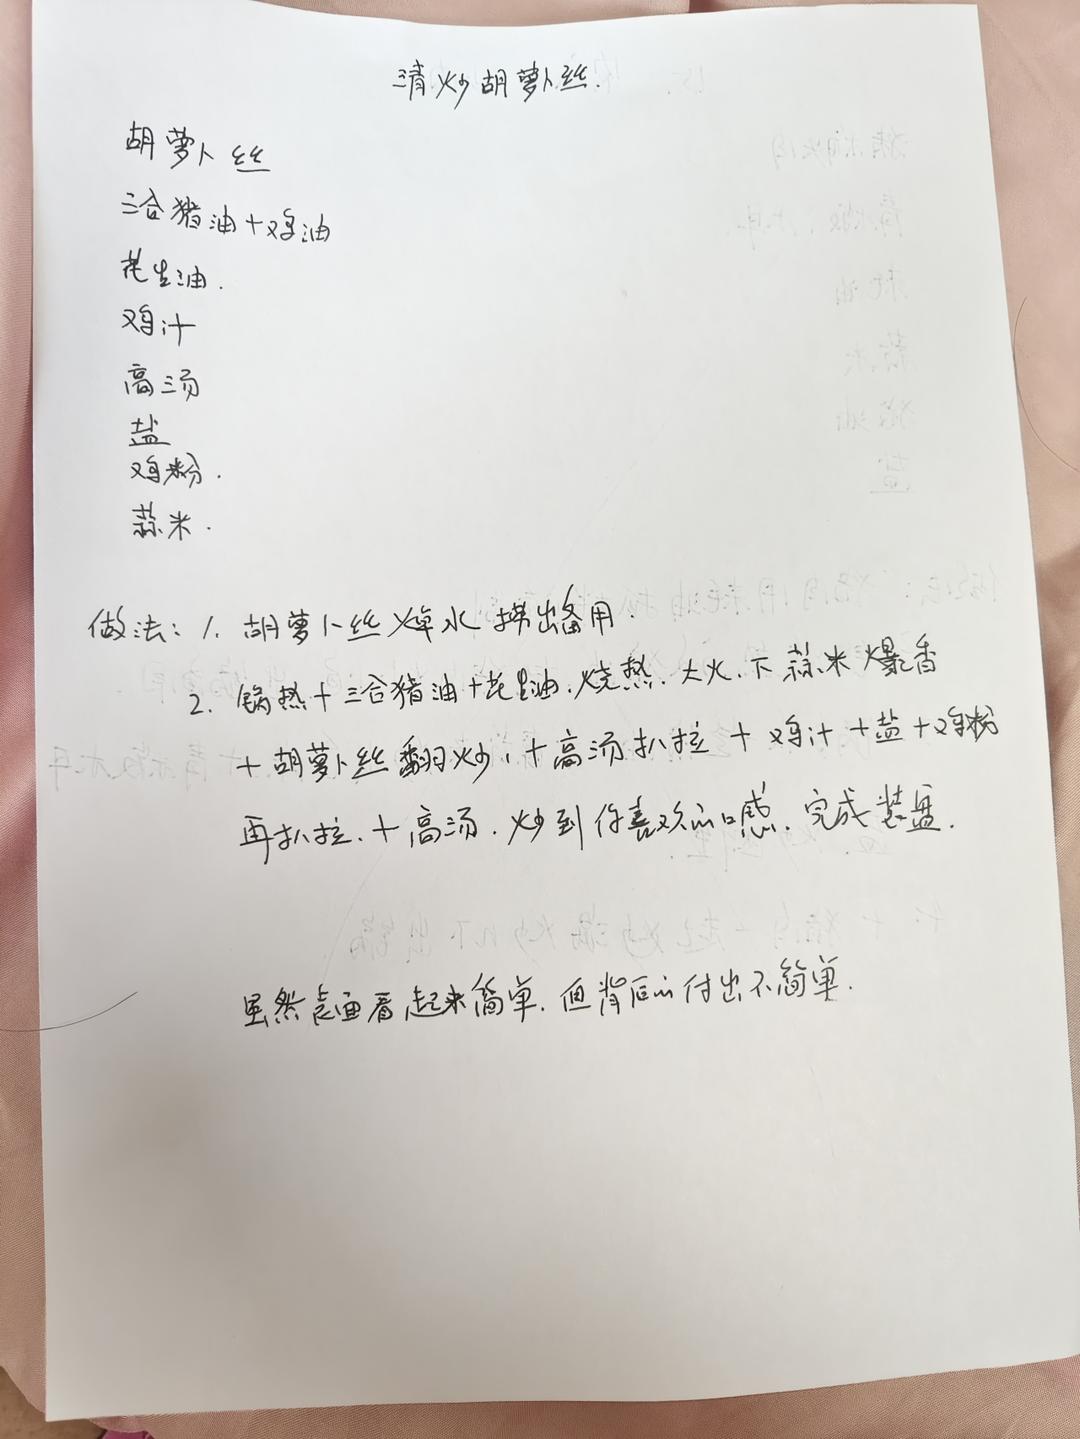 清炒胡萝卜丝.
胡萝卜丝
三合猪油+鸡油
花生油.
鸡汁
高汤
盐
鸡粉.
蒜米.
做法: 1. 胡萝卜丝焯水捞出备用.
2. 锅热+三合猪油+花生油.烧热.大火.下蒜米爆香
+胡萝卜丝翻炒,+高汤扒拉+鸡汁+盐+鸡粉
再扒拉.+高汤.炒到你喜欢的口感.完成装盘.
虽然表面看起来简单.但背后的付出不简单.